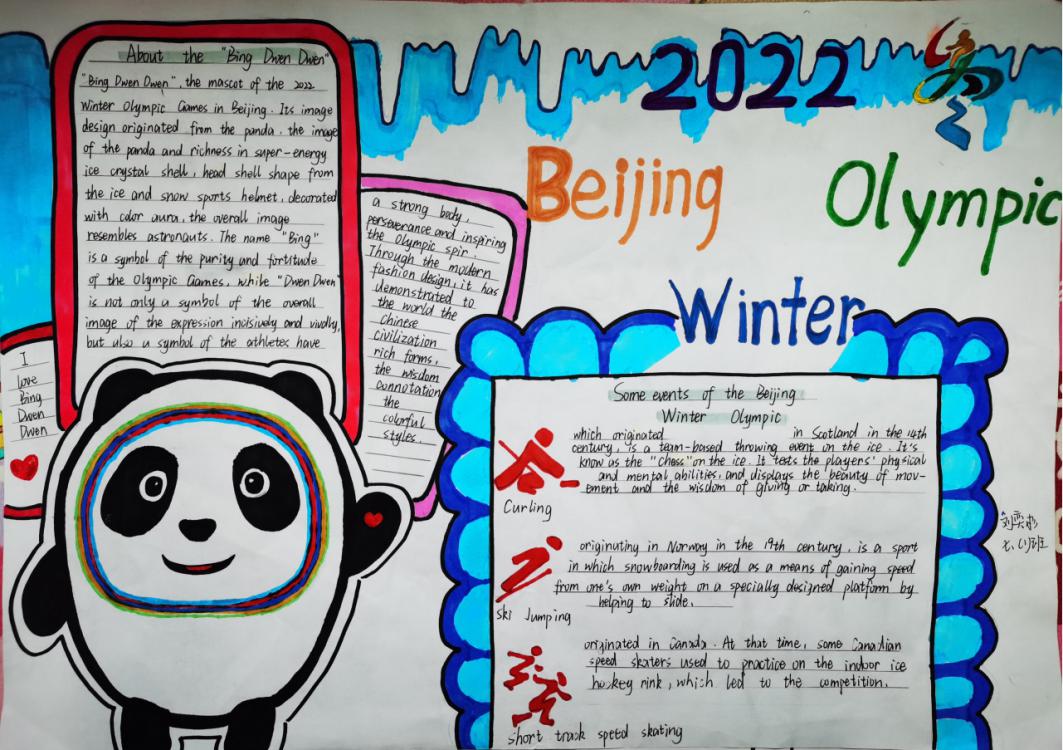 About the "Bing Dwen Dwen"
"Bing Dwen Dwen", the mascot of the 2022
Winter Olympic Games in Beijing. Its image
design originated from the panda. the image
of the panda and richness in super-energy
ice crystal shell, head shell shape from
the ice and snow sports helmet, decorated
with color aura, the overall image
resembles astronauts. The name "Bing"
is a symbol of the purity and fortitude
of the Olympic Games, while "Dwen Dwen"
is not only a symbol of the overall
image of the expression incisively and vividly,
but also a symbol of the athletes have
a strong body,
perseverance and inspiring
the Olympic spir.
Through the modern
fashion design, it has
demonstrated to
the world the
Chinese
civilization
rich forms,
the wisdom
connotation
the
colorful
styles.
I
love
Bing
Dwen
Dwen
2022
Beijing Olympic
Winter
Some events of the Beijing
Winter Olympic
which originated in Scotland in the 14th
century, is a team-based throwing event on the ice. It's
know as the "chess" on the ice. It tests the players' physical
and mental abilities, and displays the beauty of mov-
ement and the wisdom of giving or taking.
Curling
originating in Norway in the 19th century, is a sport
in which snowboarding is used as a means of gaining speed
from one's own weight on a specially designed platform by
helping to slide.
Ski Jumping
originated in Canada. At that time, some Canadian
speed skaters used to practice on the indoor ice
hockey rink, which led to the competition.
short track speed skating
七、(1)班